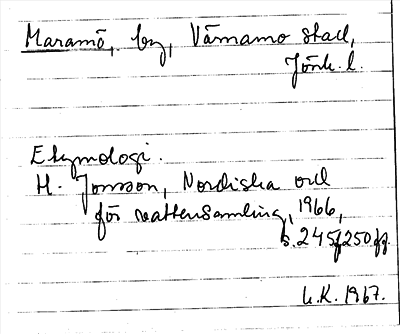 Maramö, by, Värnamo stad,
Jönk. l.
Etymologi.
H. Jonsson, Nordiska ord
för vattensamling, 1966,
s. 245, 250 fg.
L.K. 1967.